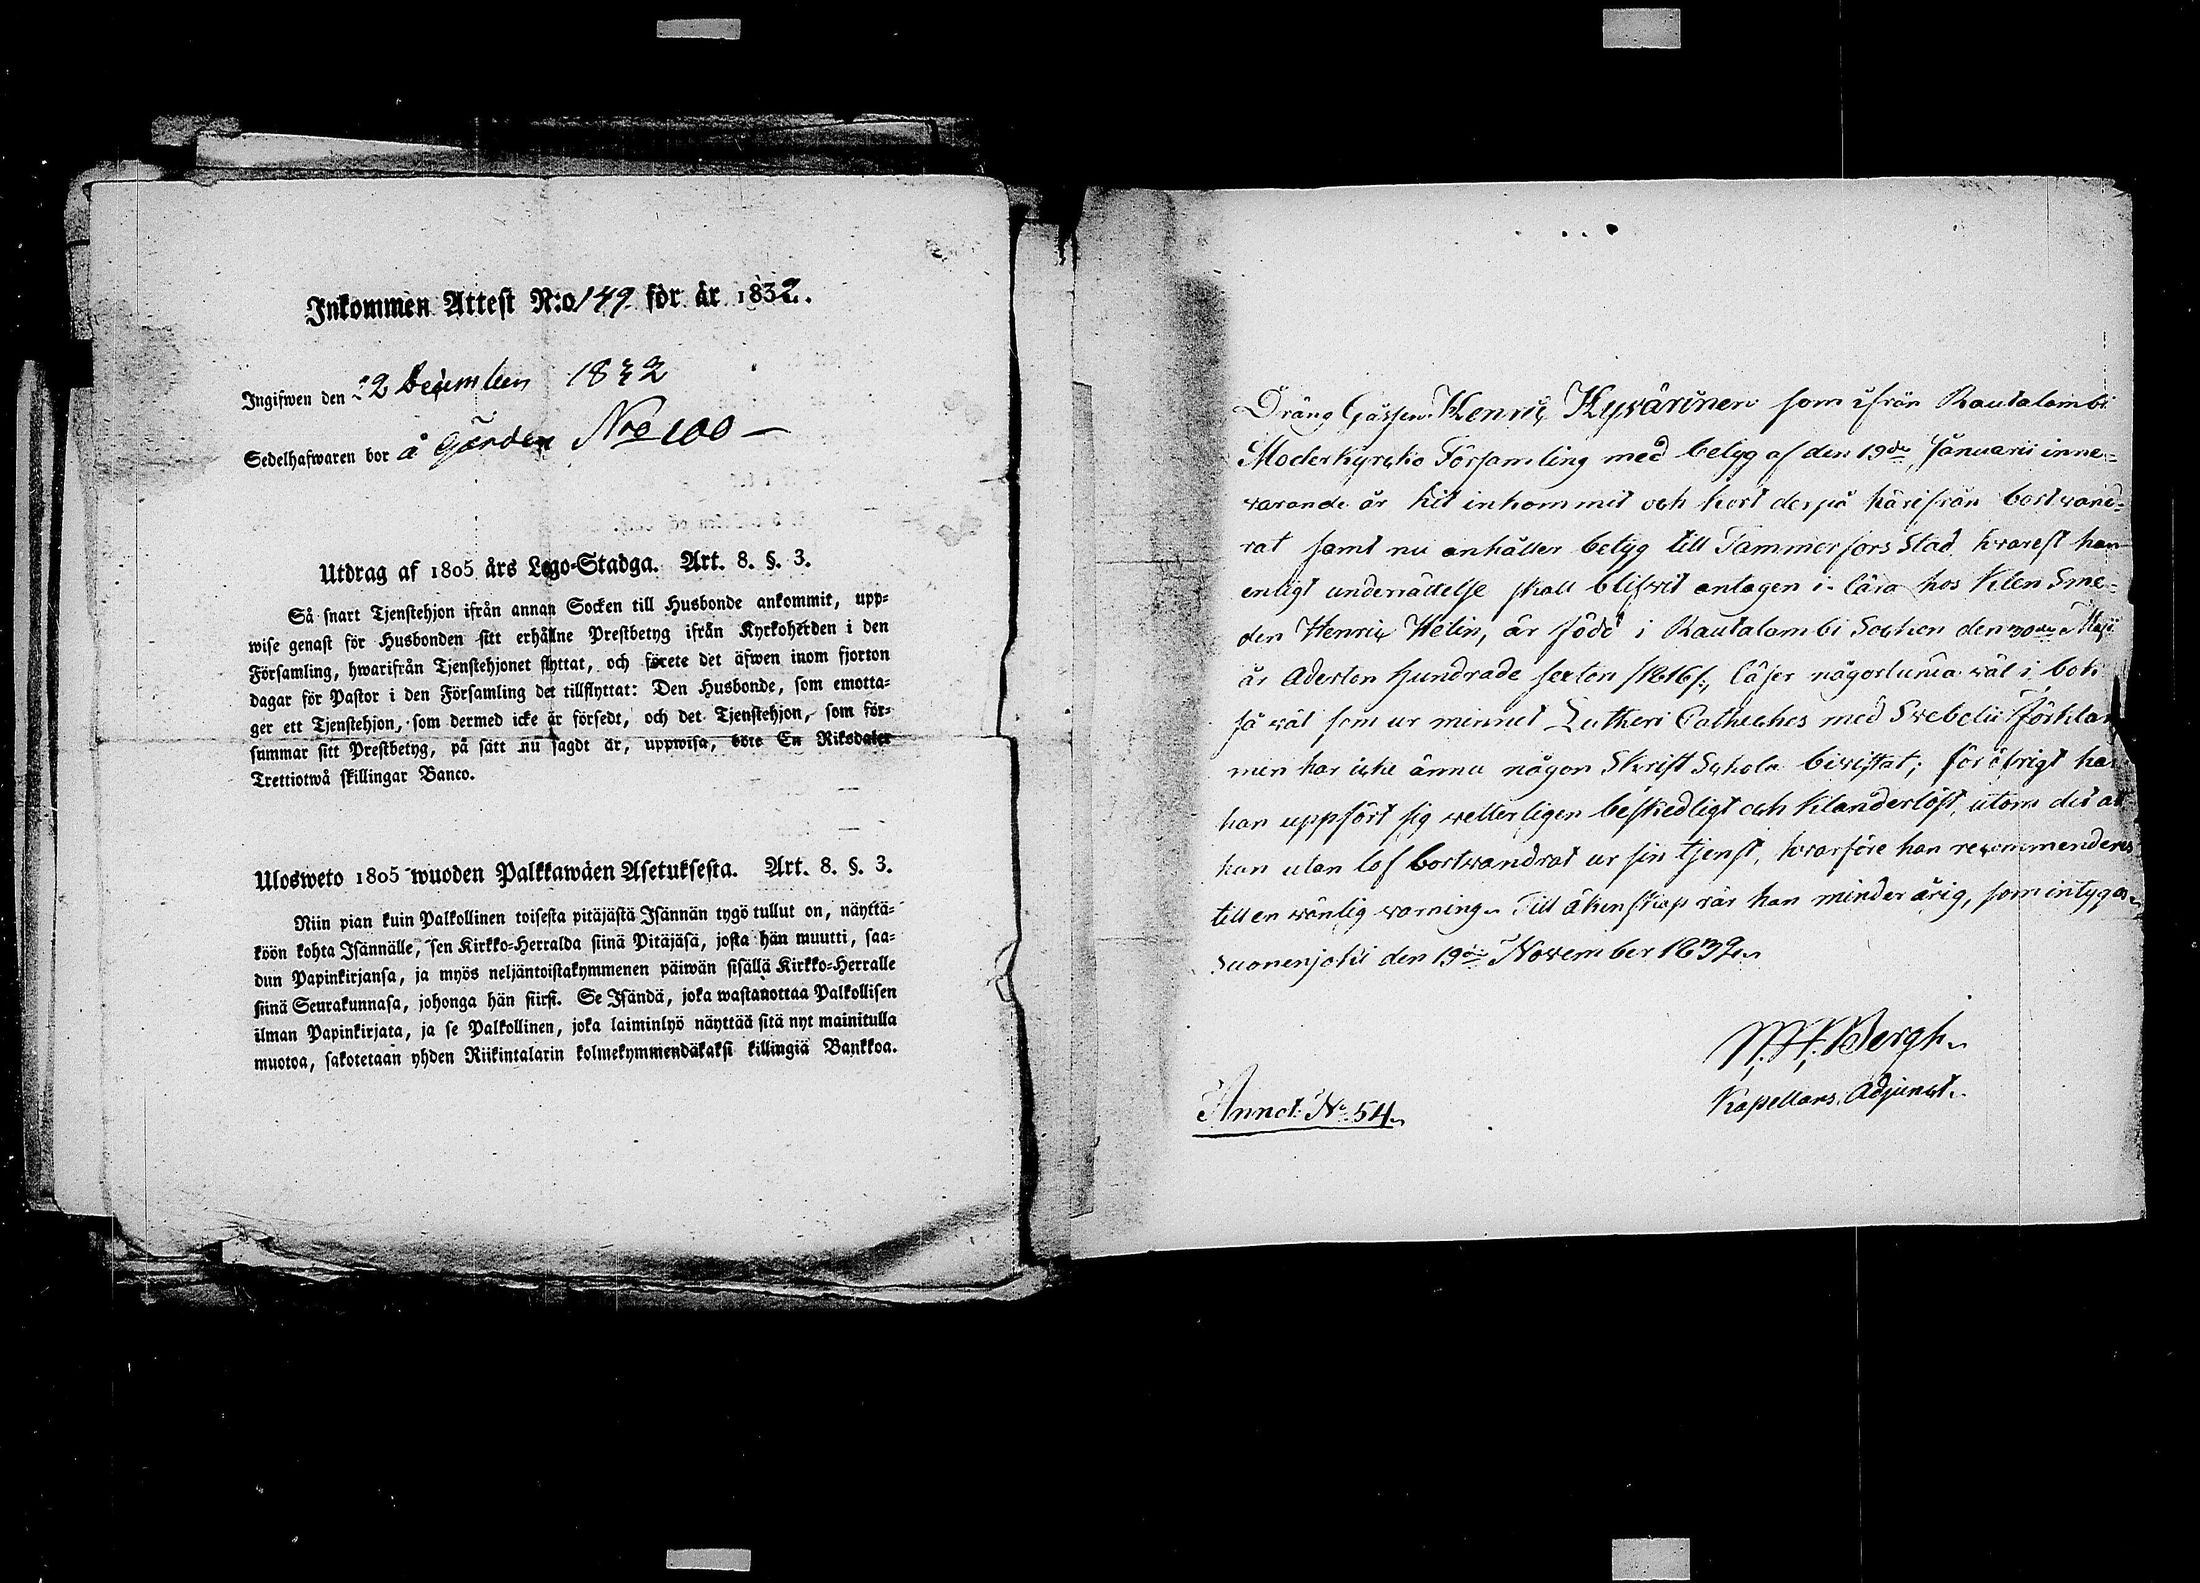 Inkommen Attest N:o 149 för år 1832.
Ingifwen den 22 December 1832
Sedelhafwaren bor å Gården Nro 100 —
Utdrag af 1805 års Lego-Stadga. Art. 8. §. 3.
Så snart Tjenstehjon ifrån annan Socken till Husbonde ankommit, upp-
wise genast för Husbonden sitt erhållne Prestbetyg ifrån Kyrkoherden i den
Församling, hwarifrån Tjenstehjonet flyttat, och förete det äfwen inom fjorton
dagar för Pastor i den Församling det tillflyttat: Den Husbonde, som emotta-
ger ett Tjenstehjon, som dermed icke är försedt, och det Tjenstehjon, som för-
summar sitt Prestbetyg, på sätt nu sagdt är, uppwisa, böte En Riksdaler
Trettiotwå skillingar Banco.
Ulosweto 1805 wuoden Palkkawäen Asetuksesta. Art. 8. §. 3.
Niin pian kuin Palkollinen toisesta pitäjästä Isännän tygö tullut on, näyttä-
köön kohta Isännälle, sen Kirkko-Herralda siinä Pitäjäsä, josta hän muutti, saa-
dun Papinkirjansa, ja myös neljäntoistakymmenen päiwän sisällä Kirkko-Herralle
siinä Seurakunnasa, johonga hän siirsi. Se Isändä, joka wastanottaa Palkollisen
ilman Papinkirjata, ja se Palkollinen, joka laiminlyö näyttää sitä nyt mainitulla
muotoa, sakotetaan yhden Riikintalarin kolmekymmendäkaksi killingiä Bankkoa.
Dräng Gåssen Henric Hyvärinen som ifrån Rautalambi
Moderkyrcko Församling med betyg af den 19de Januarii inne-
varande år hit inkommit och kort derpå härifrån bortvand-
rat samt nu anhåller betyg till Tammerfors Stad hvarest han
enligt underrättelse skall blifvit antagen i lära hos Klen Sme-
den Henric Helin, är född i Rautalambi Socken den 30de Maji
år Aderton Hundrade sexton /1816/, läser någorlunda väl i bok
så väl som ur minnet Lutheri Catheches med Svebelii Förklar
men har icke ännu någon Skrift Schola bivistat; för öfrigt har
han uppfört sig vetterligen beskedligt och Klanderlöst, utom det at
han utan lof bortvandrat ur sin tjenst, hvarföre han recommenderas
till en vänlig varning. Till äktenskap är han minderårig, som intygas.
Suonenjoki den 19de November 1832.
N. H. Bergh.
Kapellans Adjunct.
Annot: No 54.